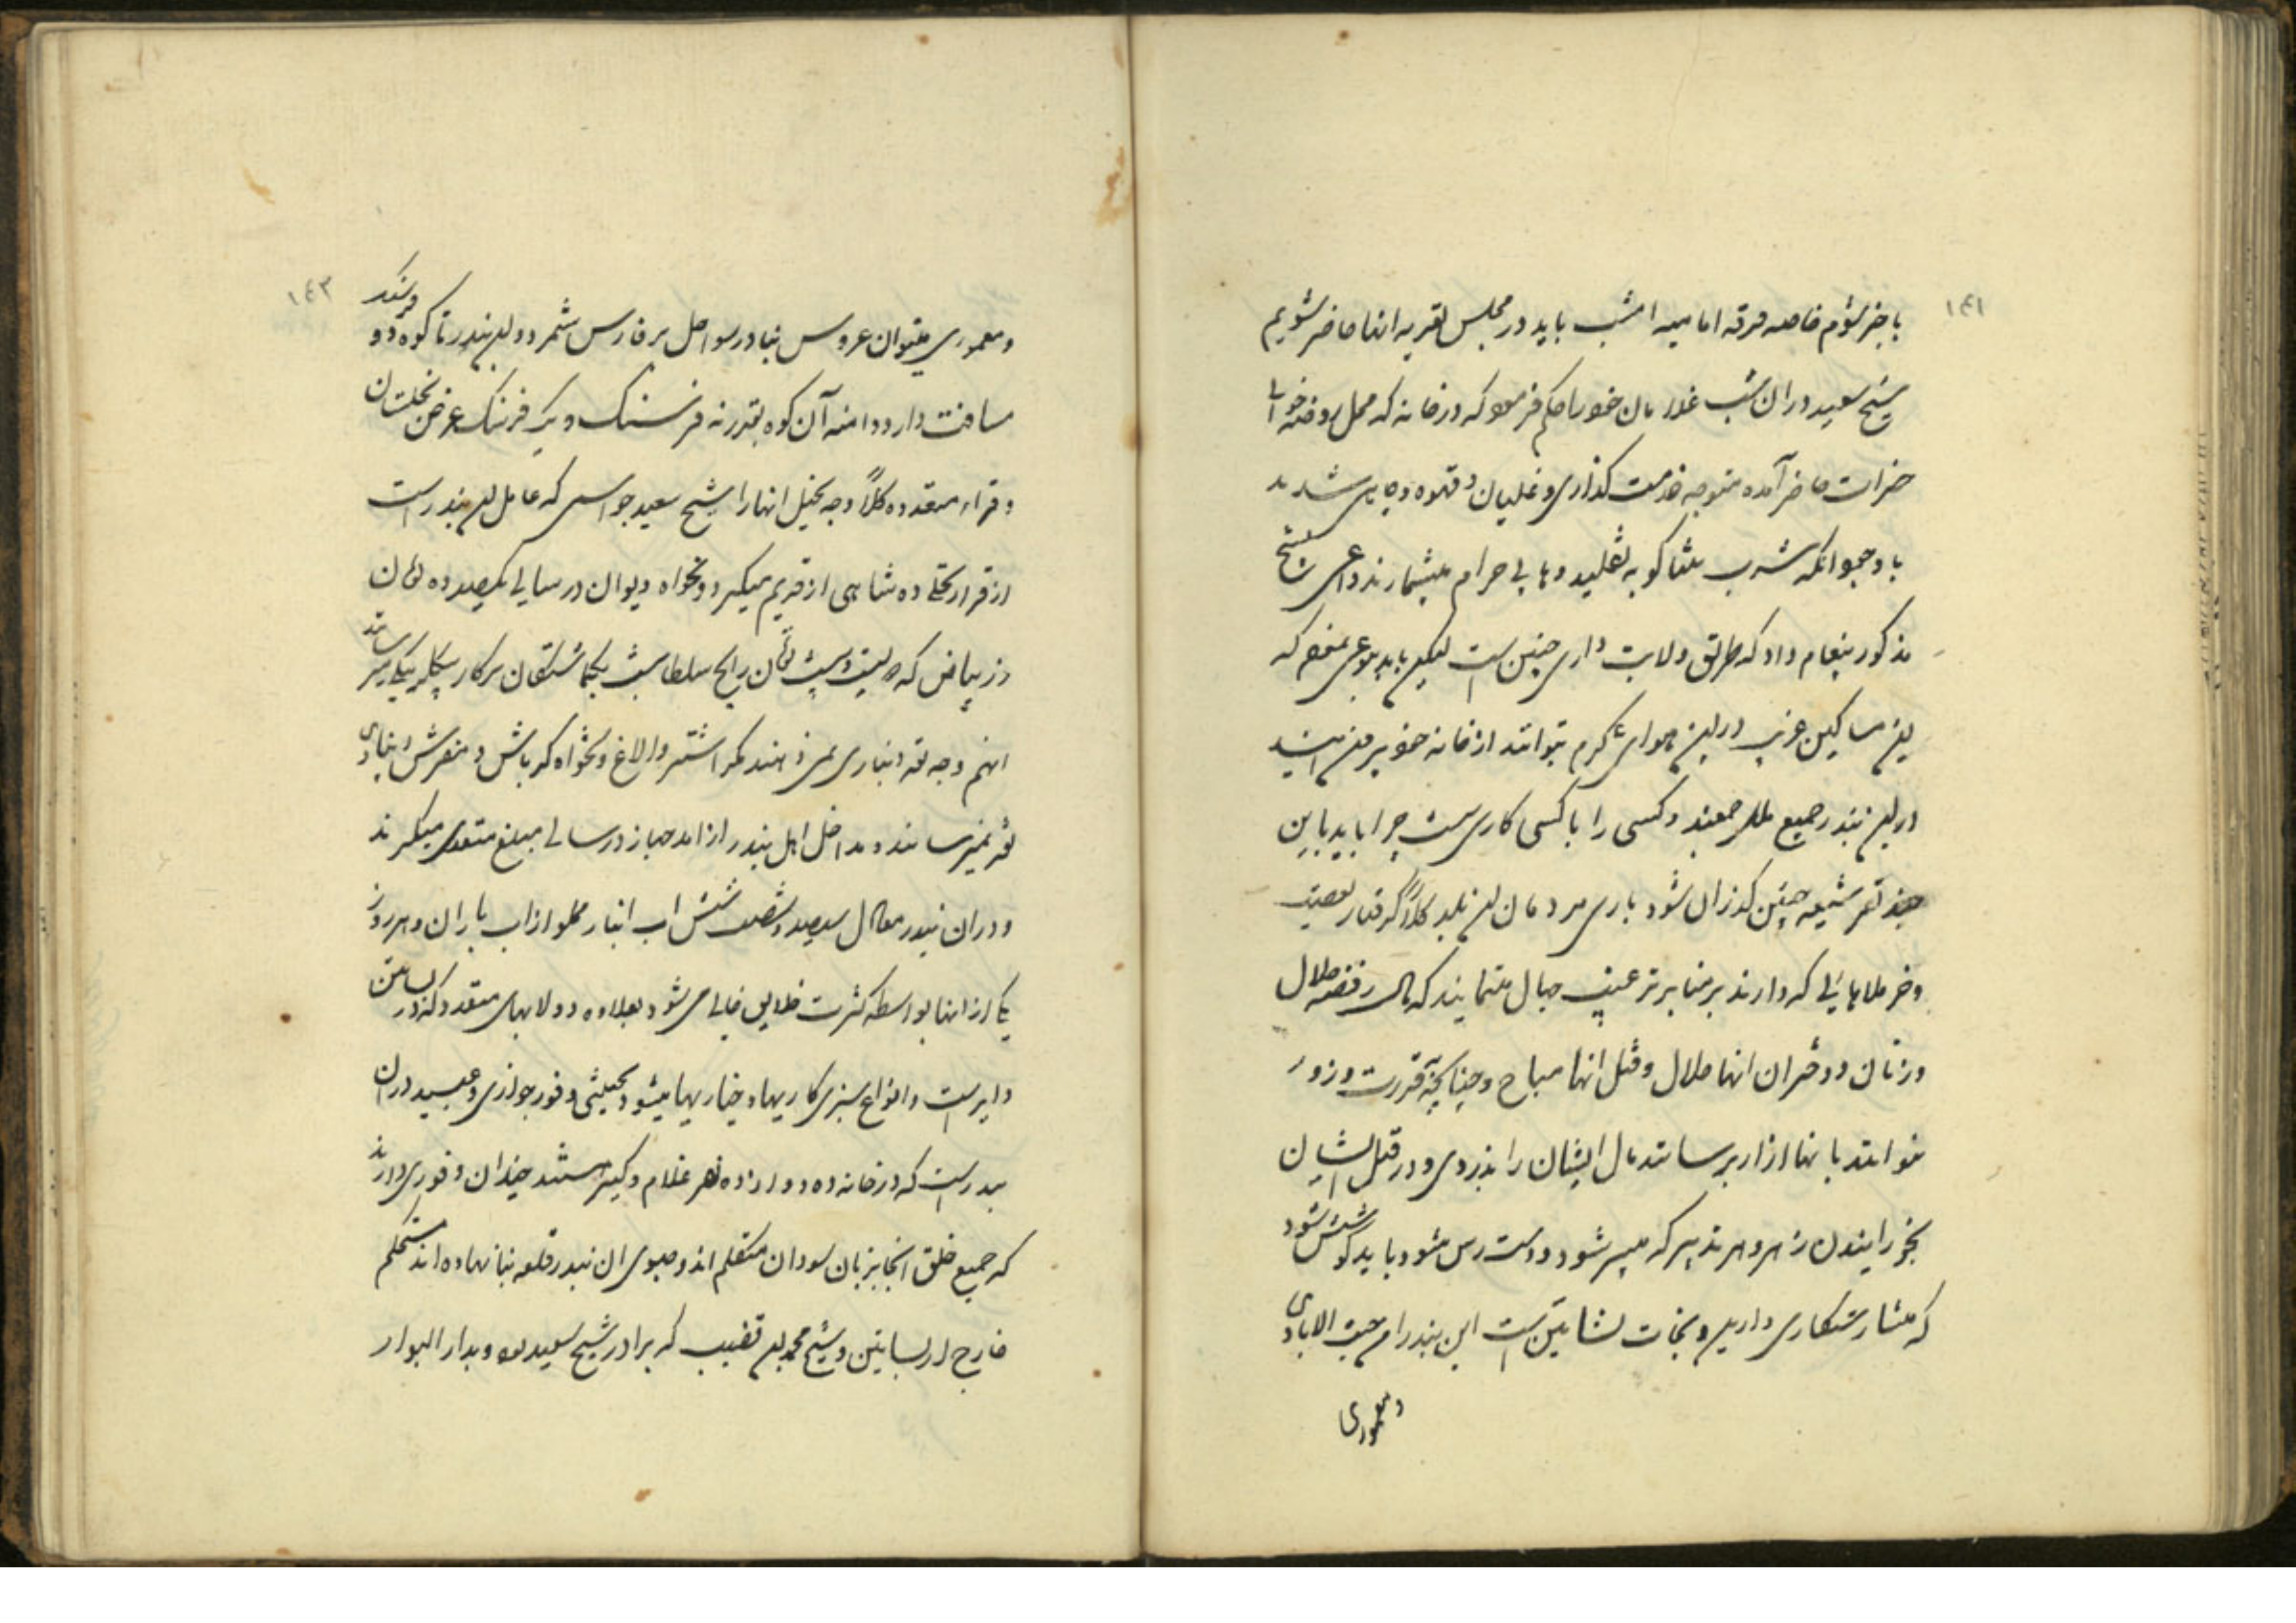 ۱۴۱
با خبر شویم خاصه فرقه امامیه امشب باید در مجلس تعزیه انها حاضر شویم
شیخ سعید در ان شب غلامان خود را حکم فرمود که در خانه که محل روضه خوا
حضرات حاضر آمده متوجه خدمت گذاری و غلیان و قهوه و چای شدند
با وجود انکه شرب تنباکو به تقلید وهابی حرام میشمارند داعی بشیخ
مذکور پیغام داد که طریق ولایت داری چنین است لیکن باید بنوعی که
این مساکین غریب در این هوای گرم بتوانند از خانه خود بیرون ایند
در این بندر جمیع ملل جمعند و کسی را با کسی کاری نیست چرا باید باین
چند نفر شیعه چنین گذران شود باری مردمان این بلد کلاً گرفتار تعصبند
و خر ملاهائی که دارند بر منابر ترغیب جهال مینمایند که مال رفضه حلال
و زنان و دختران انها حلال و قتل انها مباح و چنانچه قدرت و زور
نتوانند بانها ازار برسانند مال ایشان را بدزدی و در قتل ایشان
بخورانیدن زهر و هر تدبیر که میسر شود و دست رس شود باید کوشش شود
که منشا رستکاری دارین و نجات نشاتین است این بندر از حیث الابادی
و معموری
۱۴۳
و معموری میتوان عروس بنادر سواحل بر فارس شمرد و این بندر تا کوه دو فرسنک
مسافت دارد و دامنه آن کوه بقدر نه فرسنک و یک فرسنک عرض نخلستان
و قراء متعدده کلاً وجه نخیل انها را شیخ سعید جواسمی که عامل این بندر است
از قرار نخلی ده شاهی از قدیم میکیرد و تنخواه دیوان در سالی یکصد و ده تومان
زر بیاض که دویست و بیست تومان رایج سلطانیست بکماشتکان سرکار بیکلربیکی میرساند
انهم وجه نقد نمیدهند مکر اشتر و الاغ و تنخواه کرباس و مفرش دیناری
نقد نمیرسانند و مداخل اهل بندر از امد جهاز در سالی مبلغ متعدی میکیرند
و در ان بندر معادل سیصد و شصت و شش اب انبار مملو از اب باران و هر روز
یکی از انها بواسطه کثرت خلایق خالی می شود بعلاوه دولابهای متعدد که در بساتین
دایر است و انواع سبزی کاریها و خیاریها میشود بحیثی وفور جواری و عبید در ان
بندر است که در خانه ده و دوازده نفر غلام و کنیز هستند چندان وفوری دارند
که جمیع خلق انجا بزبان سودان متکلم اند و جنوبی ان بندر قلعه بنا نهاده اند مستحکم
خارج از بساتین و شیخ محمد بن قضیب که برادر شیخ سعید بود و بدار البوار